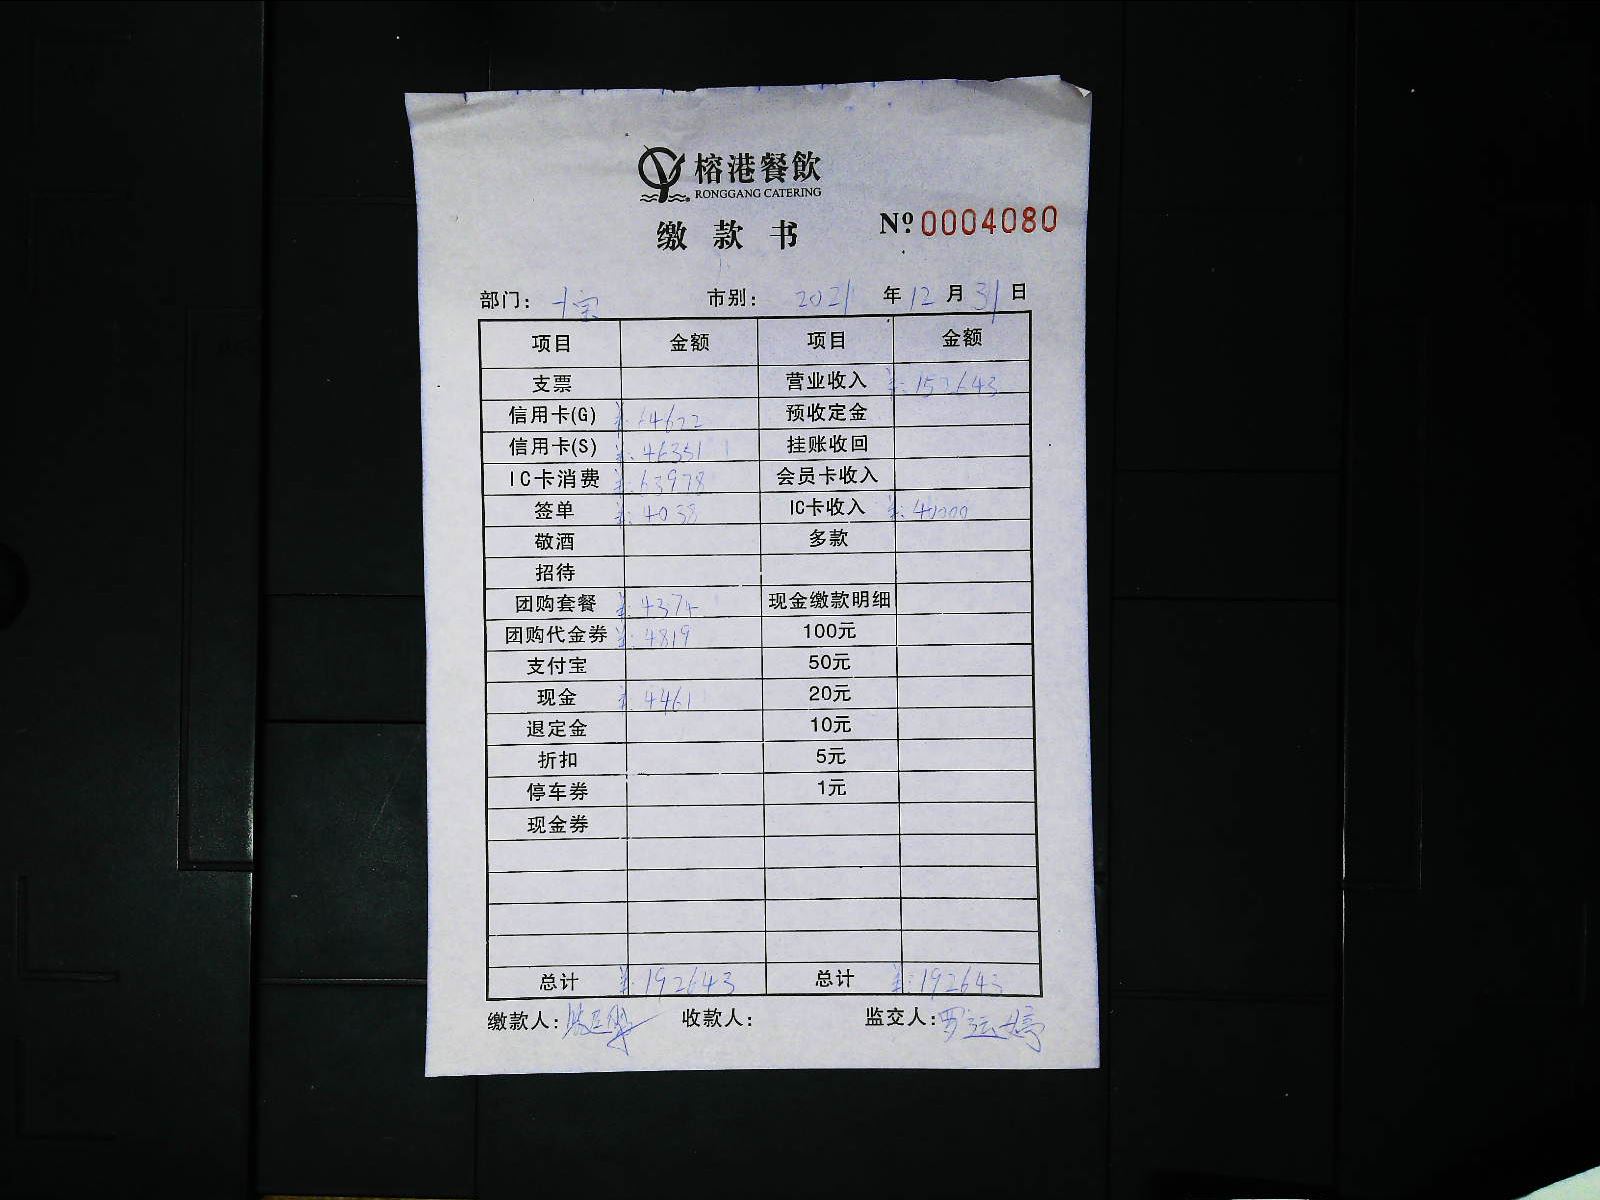 榕港餐飲
RONGGANG CATERING
缴款书 Nº 0004080
部门： 市别： 2021 年 12 月 31 日
项目 金额 项目 金额
支票 营业收入 ¥：152643
信用卡(G) ¥：64622 预收定金
信用卡(S) ¥：46351 挂账收回
IC卡消费 ¥：63978 会员卡收入
签单 ¥：4038 IC卡收入 ¥：40000
敬酒 多款
招待
团购套餐 ¥：4374 现金缴款明细
团购代金券 ¥：4819 100元
支付宝 50元
现金 ¥：4461 20元
退定金 10元
折扣 5元
停车券 1元
现金券
总计 ¥：192643 总计 ¥：192643
缴款人： 收款人： 监交人：罗运婷